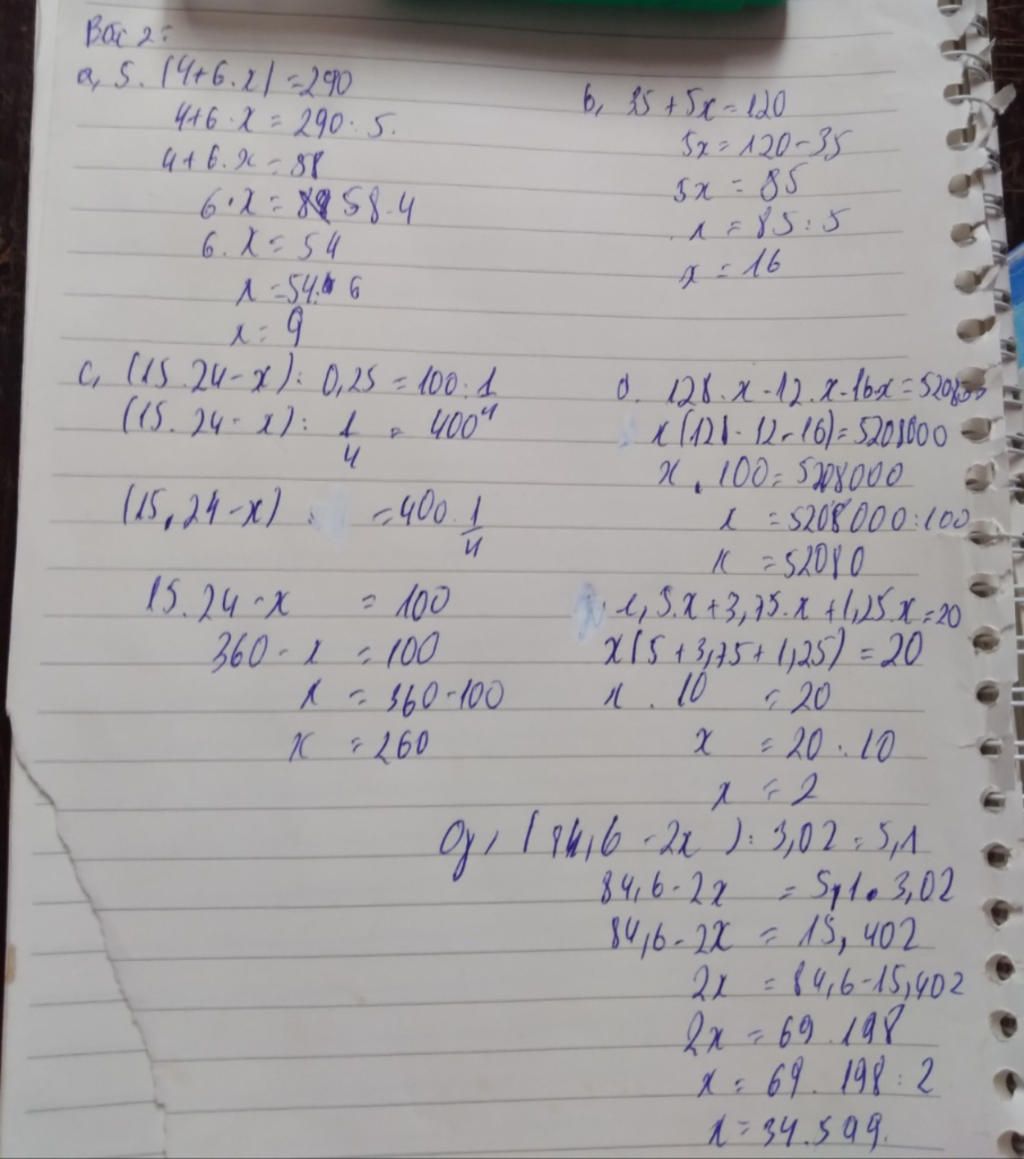 Bài 2:
a, 5. (4+6.x) = 290
4+6.x = 290:5.
4+6.x = 58
6.x = 58-4
6.x = 54
x = 54:6
x = 9
b, 35 + 5x = 120
5x = 120-35
5x = 85
x = 85:5
x = 16
c, (15.24-x): 0,25 = 100:1/4
(15.24-x): 1/4 = 400
(15.24-x) = 400.1/4
15.24-x = 100
360-x = 100
x = 360-100
x = 260
d. 128.x-12.x-16x = 5208000
x(128-12-16) = 5208000
x.100 = 5208000
x = 5208000:100
x = 52080
e, 5.x+3,75.x+1,25.x = 20
x(5+3,75+1,25) = 20
x.10 = 20
x = 20:10
x = 2
g, (84,6-2x): 3,02 = 5,1
84,6-2x = 5,1.3,02
84,6-2x = 15,402
2x = 84,6-15,402
2x = 69.198
x = 69.198:2
x = 34.599.